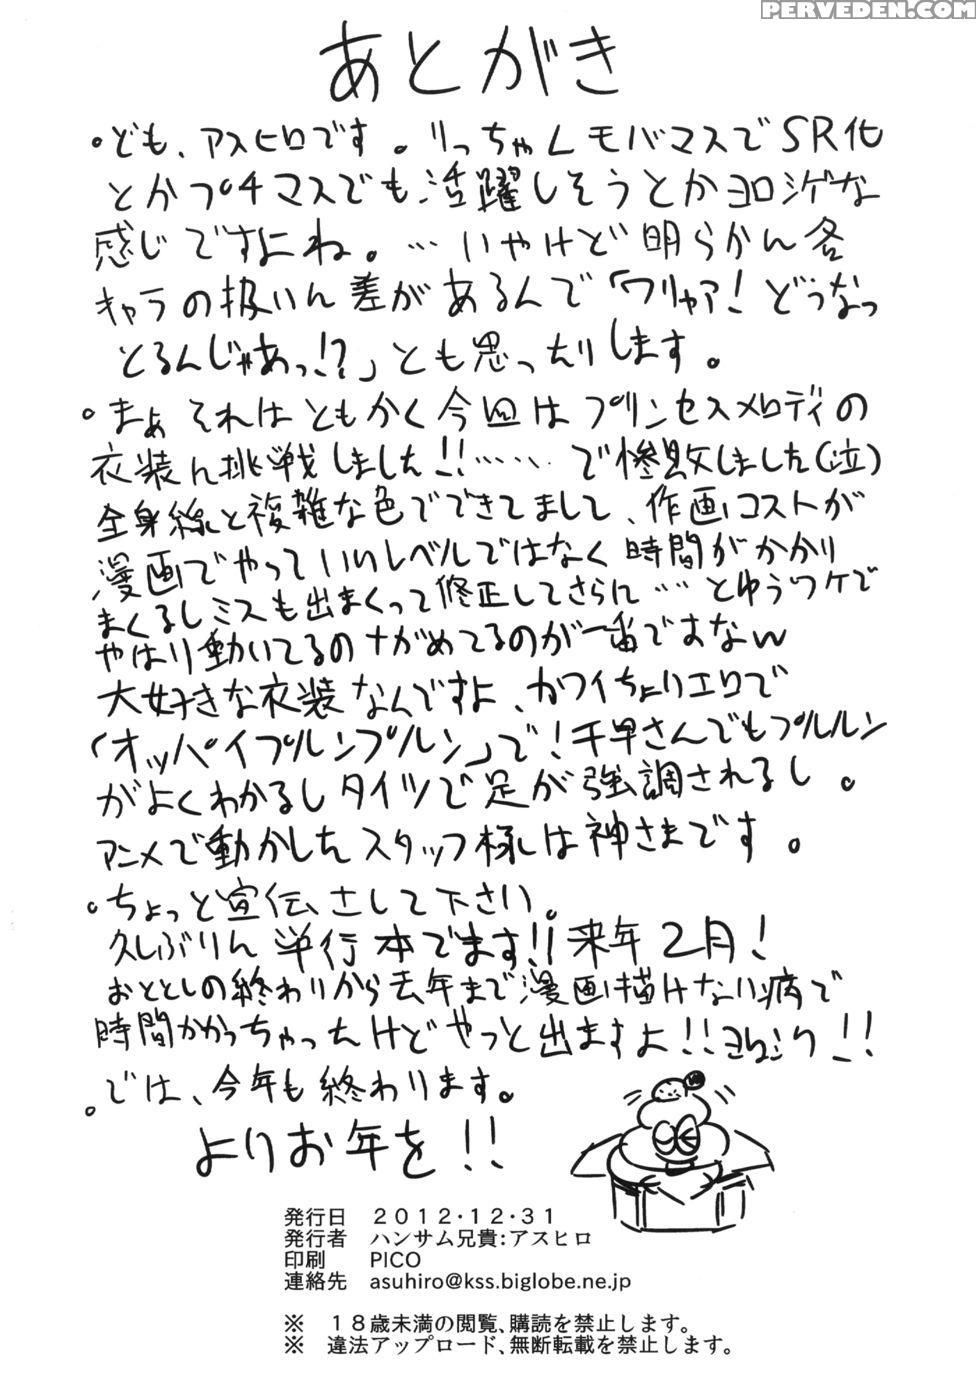 PERVEDEN.COM
あとがき
・ども、アスヒロです。りっちゃんモバマスでSR化
とかプチマスでも活躍しそうとかヨロシゲな
感じですよね。…いやけど明らかん各
キャラの扱いん差があるんで「ワリャア!どうなっ
とるんじゃあっ!?」とも思ったりします。
・まぁそれはともかく今回はプリンセスメロディの
衣装ん挑戦しました!!……で惨敗しました(泣)
全身線と複雑な色でできてまして、作画コストが
漫画でやっていいレベルではなく時間がかかり
まくるしミスも出まくって修正してさらに…とゆうワケで
やはり動いてるのナがめてるのが一番ですなw
大好きな衣装なんですよ、カワイちょりエロで
「オッパイプルンプルン」で!千早さんでもプルルン
がよくわかるしタイツで足が強調されるし。
アニメで動かしたスタッフ様は神さまです。
・ちょっと宣伝さして下さい。
久しぶりん単行本でます!!来年2月!
おととしの終わりから去年まで漫画描けない病で
時間かかっちゃったけどやっと出ますよ!!ヨロシク!!
・では、今年も終わります。
よりお年を!!
発行日 2012・12・31
発行者 ハンサム兄貴:アスヒロ
印刷 PICO
連絡先 asuhiro@kss.biglobe.ne.jp
※ 18歳未満の閲覧、購読を禁止します。
※ 違法アップロード、無断転載を禁止します。